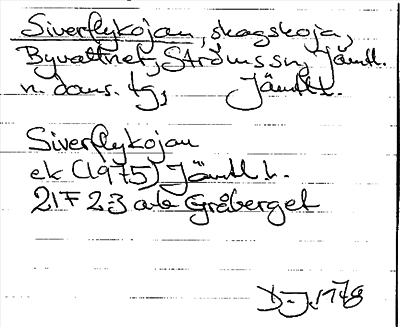 Siverflykojan, skogskoja,
Byvattnet, Ströms sn, Jämtl.
n. doms. tg, Jämtl l.
Siverflykojan
ek (1975) Jämtl l.
21F 2-3 a-b Gråberget
D-J. 1978